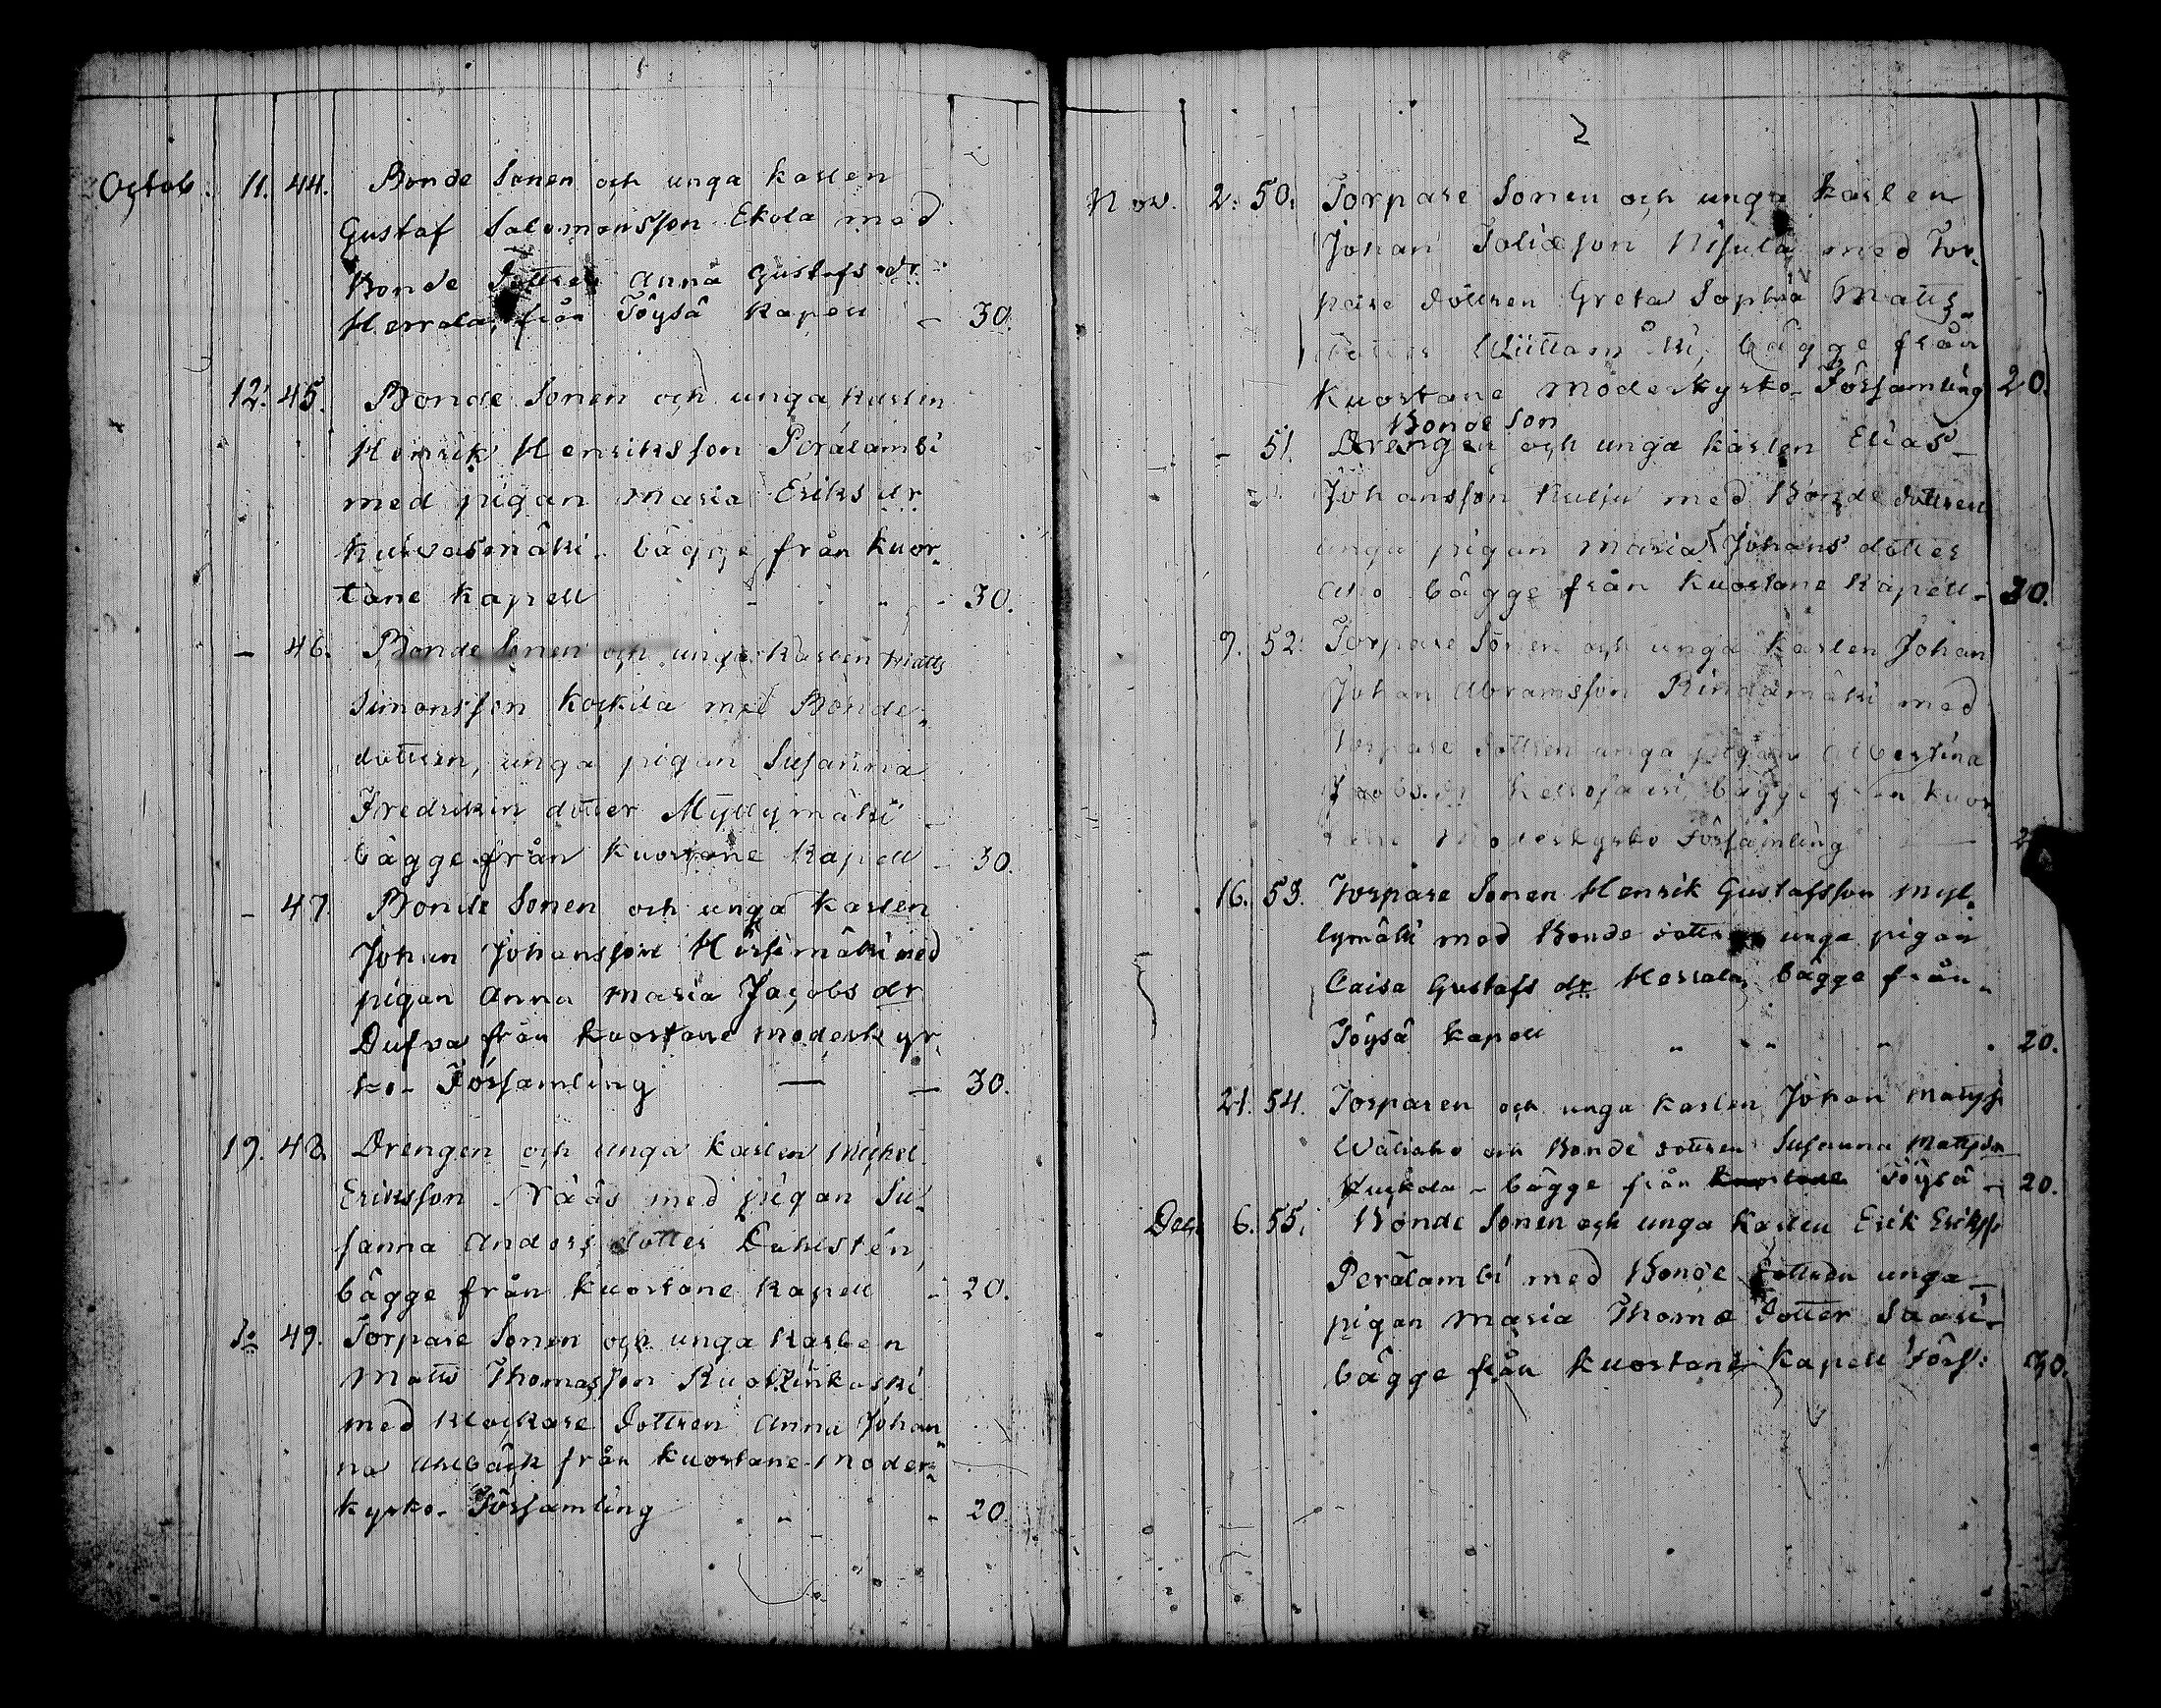 Octob. 11. 44. Bonde Sonen och unga karlen
Gustaf Salomonsson Ekola med
Bonde Dottren Anna Gustafs dr
Herrala, från Töysä Kapell - 30.
12. 45. Bonde Sonen och unga karlen
Henrik Henriksson Perälambi
med pigan Maria Eriks dr
Kuivasmäki bägge från Kuor-
tane Kapell - 30.
- 46. Bonde Sonen och unga karlen Matts
Simonsson Kockila med Bonde-
dottren, unga pigan Susanna
Fredrikin dotter Myllymäki
bägge från Kuortane Kapell - 30.
- 47. Bonde Sonen och unga karlen
Johan Johansson Hirsimäki med
pigan Anna Maria Jacobs dr
Dufva från Kuortane Moderkyr-
ko- Församling — 30.
19. 48. Drengen och unga karlen Michel
Eriksson Rääs med pigan Su-
sanna Anders dotter Dahlsten,
bägge från Kuortane Kapell - 20.
Do 49. Torpare Sonen och unga karlen
Matts Thomasson Ruokinkoski
med Klockare Dottren Anna Johan-
na Ahlbäck från Kuortane Moder-
kyrko- Församling - 20
2
Nov. 2. 50. Torpare Sonen och unga karlen
Johan Nisula med Tor-
pare dottren Greta Sophia Matts
dotter bägge från
Kuortane Moderkyrko- Församling 20.
Bonde Son
- 51. Drengen och unga karlen Elias
Johansson Kulju med Bonde dottren
unga pigan Maria Johans dotter
Aho bägge från Kuortane Kapell - 30.
9. 52. Torpare Sonen och unga karlen Johan
Johan Abramsson Rindamäki med
Torpare dottren unga pigan Albertina
Jacobs dr bägge från Kuor-
tane Moderkyrko Församling —
16. 53. Torpare Sonen Henrik Gustafsson Myl-
lymäki med Bonde dottren unga pigan
Caisa Gustafs dr Herrala, bägge från
Töysä Kapell 20.
21. 54. Torparen och unga karlen Johan Mattss.
och Bonde dottren Susanna Mattsdr
bägge från Kuortane Töysä - 20.
Dec. 6. 55. Bonde Sonen och unga karlen Erik Erikss.
Perälambi med Bonde dottren unga
pigan Maria Thomæ Dotter Saari
bägge från Kuortane Kapell Förs: 30.